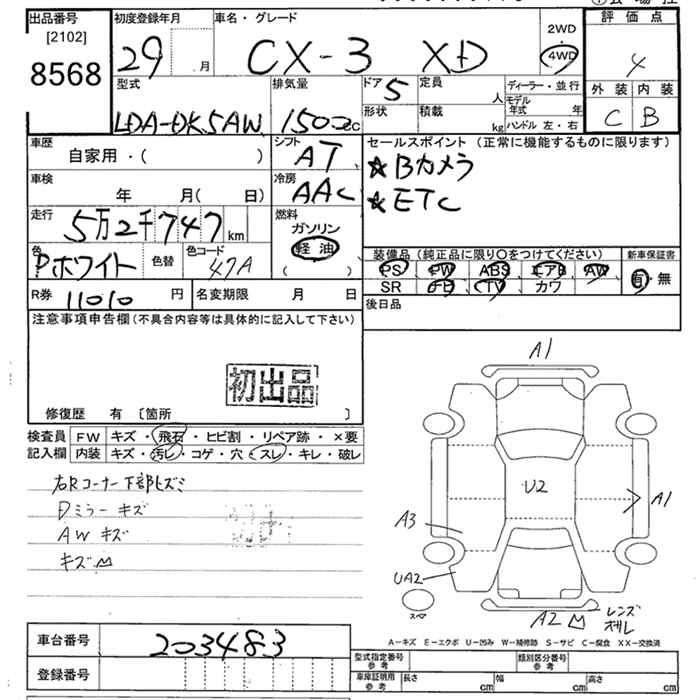 出品番号
[2102]
8568
初度登録年月
29 月
車名・グレード
CX-3 XD
2WD
4WD
評価点
4
外装 内装
C B
型式
LDA-DK5AW
排気量
1500cc
ドア 5
形状
定員 人
積載 kg
ディーラー・並行
モデル年式 年
ハンドル 左・右
車歴
自家用・( )
シフト
AT
セールスポイント (正常に機能するものに限ります)
★Bカメラ
★ETC
車検
年 月( 日)
冷房
AAC
走行
5万2千747 km
燃料
ガソリン
軽油
( )
色
Pホワイト
色替
色コード
47A
装備品 (純正品に限り○をつけてください)
新車保証書
PS PW ABS エアB AW
SR TV カワ
有・無
R券 11010 円
名変期限 月 日
後日品
注意事項申告欄(不具合内容等は具体的に記入して下さい)
初出品
修復歴 有 〔箇所 〕
検査員記入欄
FW キズ・飛石・ヒビ割・リペア跡・×要
内装 キズ・汚レ・コゲ・穴・スレ・キレ・破レ
右Rコーナー下部ヒズミ
Dミラーキズ
AWキズ
キズM
A1
U2
A1
A3
UA2
スペ
A2 M
レンズ
A-キズ E-エクボ U-凹み W-補修跡 S-サビ C-腐食 XX-交換済
車台番号
203483
登録番号
型式指定番号 参考
類別区分番号 参考
車庫証明用 参考
長さ cm
幅 cm
高さ cm